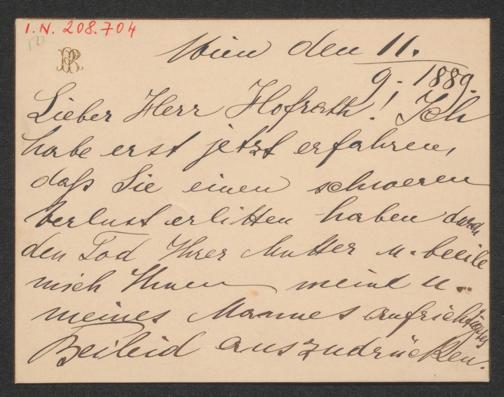 I.N. 208.704
Wien den 11.
9. 1889.
Lieber Herr Hofrath! Ich
habe erst jetzt erfahren,
daß Sie einen schweren
Verlust erlitten haben durch
den Tod Ihrer Mutter u. beeile
mich Ihnen mein u.
meines Mannes aufrichtigstes
Beileid auszudrücken.